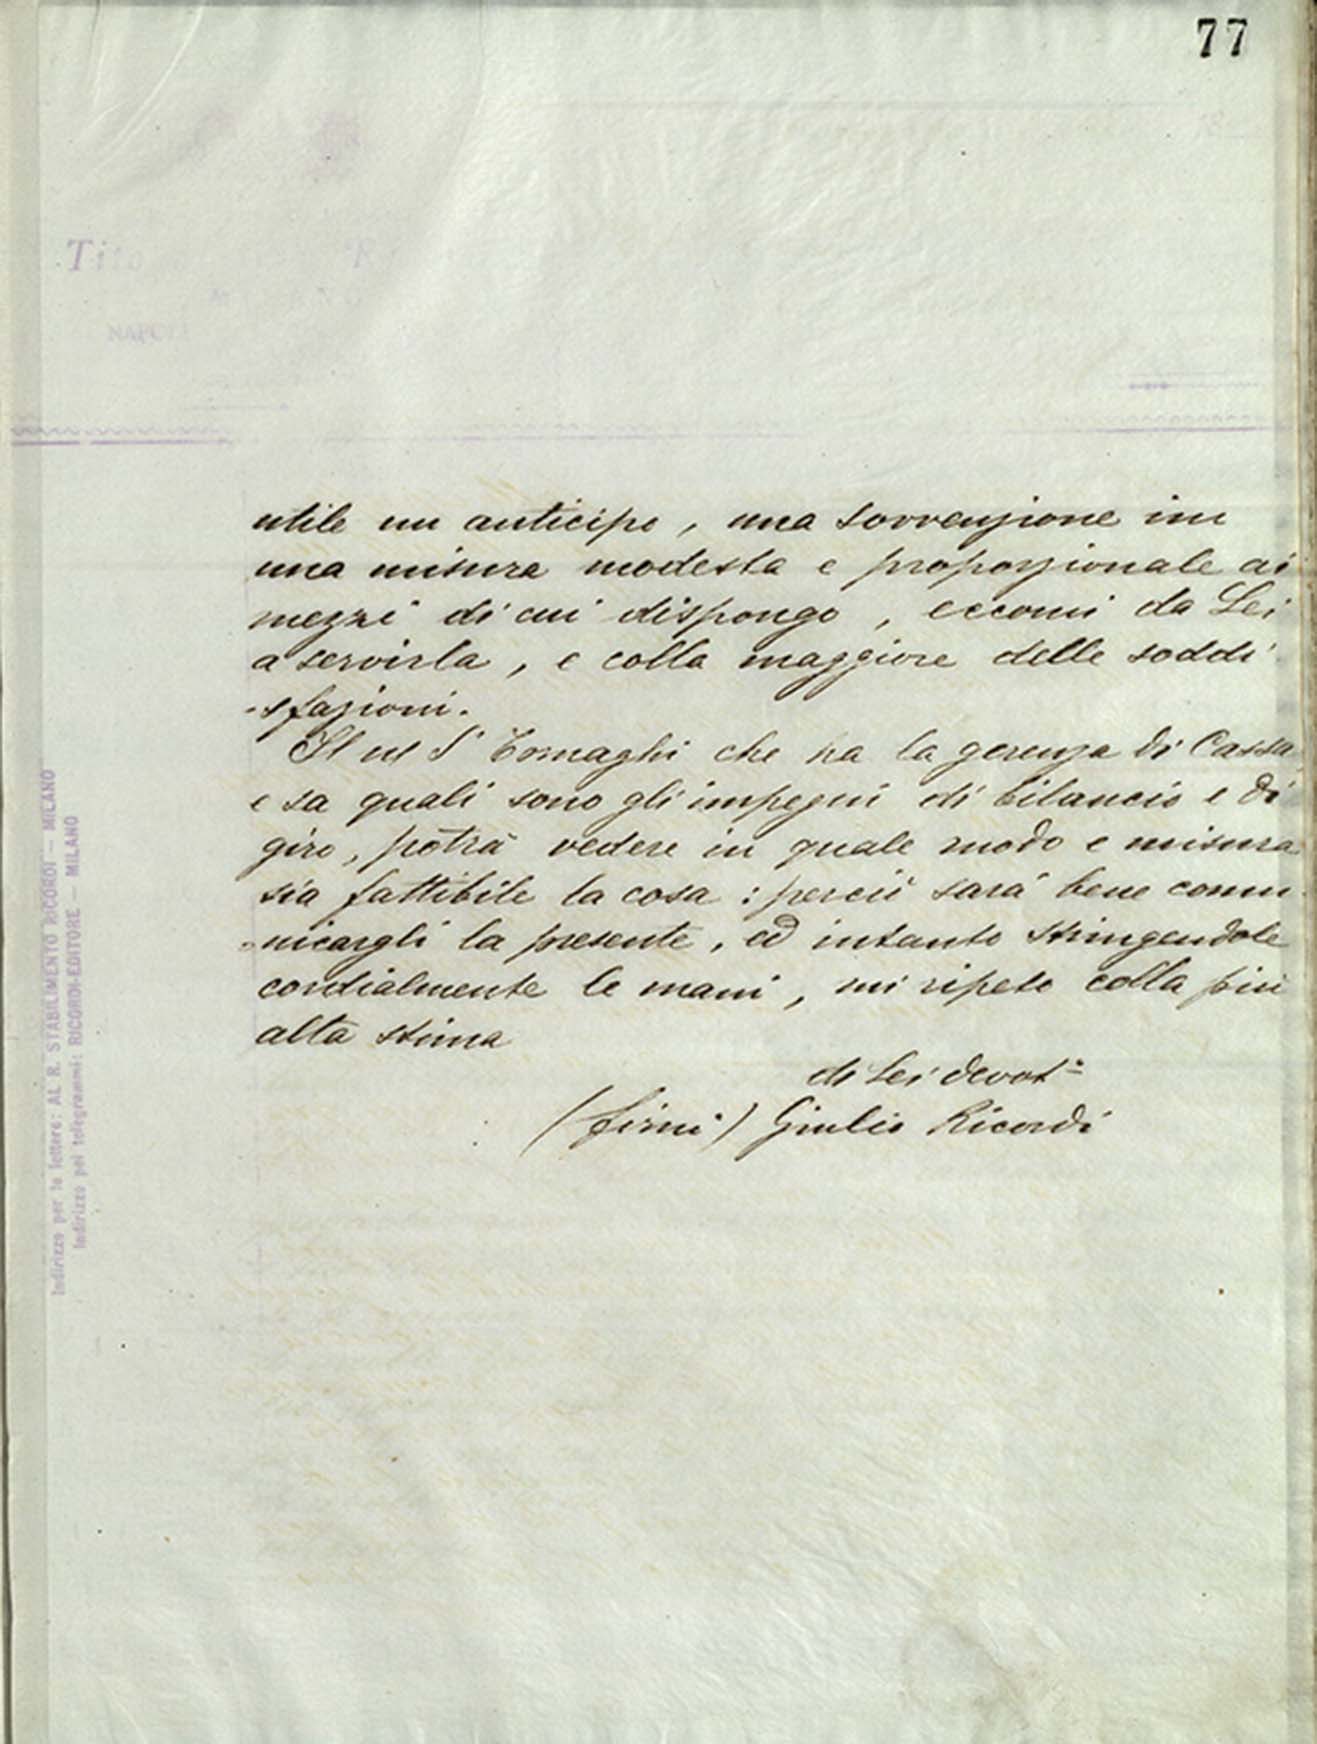 77
Tito
NAPOLI
utile un anticipo, una sovvenzione in
una misura modesta e proporzionale ai
mezzi di cui dispongo, eccomi da Lei
a servirla, e colla maggiore delle soddi
-sfazioni.
Il S.r Tornaghi che ha la gerenza di Cassa
e sa quali sono gli impegni di bilancio e di
giro, potrà vedere in quale modo e misura
sia fattibile la cosa: perciò sarà bene comu
-nicargli la presente, ed intanto stringendole
cordialmente le mani, mi ripeto colla più
alta stima
di Lei devot.o
(firm.) Giulio Ricordi
Indirizzo per le lettere: AL R. STABILIMENTO RICORDI — MILANO
Indirizzo pei telegrammi: RICORDI-EDITORE — MILANO